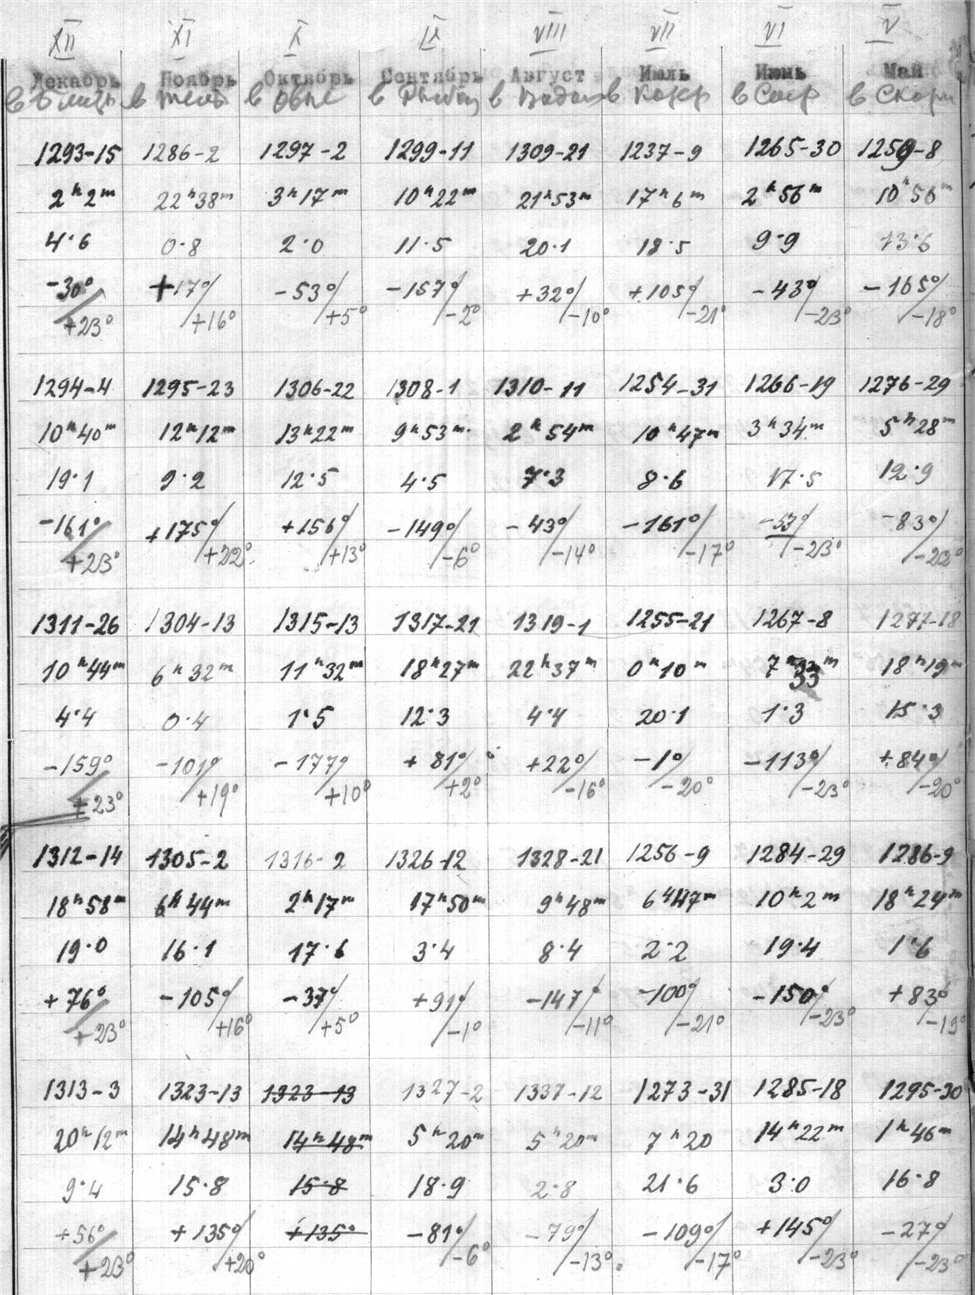 XII XI X IX VIII VII VI V
Декабрь Ноябрь Октябрь Сентябрь Август Июль Июнь Май
в Близн в Тельц в Овне в Рыбах в Водол в Козер в Стр в Скорп
1293-15 1286-2 1297-2 1299-11 1309-21 1237-9 1265-30 1259-8
2ʰ2ᵐ 22ʰ38ᵐ 3ʰ17ᵐ 10ʰ22ᵐ 21ʰ53ᵐ 17ʰ6ᵐ 2ʰ56ᵐ 10ʰ56ᵐ
4·6 0·8 2·0 11·5 20·1 18·5 9·9 13·6
-30°/ +17°/ -53°/ -157°/ +32°/ +105°/ -43°/ -165°/
+23° +16° +5° -2° -10° -21° -23° -18°
1294-4 1295-23 1306-22 1308-1 1310-11 1254-31 1266-19 1276-29
10ʰ40ᵐ 12ʰ12ᵐ 13ʰ22ᵐ 9ʰ53ᵐ 2ʰ54ᵐ 10ʰ47ᵐ 3ʰ34ᵐ 5ʰ28ᵐ
19·1 9·2 12·5 4·5 7·3 8·6 17·5 12·9
-161°/ +175°/ +156°/ -149°/ -43°/ -161°/ -53°/ -83°/
+23° +22° +13° -6° -14° -17° -23° -22°
1311-26 1304-13 1315-13 1317-21 1319-1 1255-21 1267-8 1277-18
10ʰ44ᵐ 6ʰ32ᵐ 11ʰ32ᵐ 18ʰ27ᵐ 22ʰ37ᵐ 0ʰ10ᵐ 7ʰ33ᵐ 18ʰ19ᵐ
4·4 0·4 1·5 12·3 4·4 20·1 1·3 15·3
-159°/ -101°/ -177°/ +81°/ +22°/ -1°/ -113°/ +84°/
+23° +19° +10° +2° -16° -20° -23° -20°
1312-14 1305-2 1316-2 1326-12 1328-21 1256-9 1284-29 1286-9
18ʰ58ᵐ 6ʰ44ᵐ 2ʰ17ᵐ 17ʰ50ᵐ 9ʰ48ᵐ 6ʰ47ᵐ 10ʰ2ᵐ 18ʰ24ᵐ
19·0 16·1 17·6 3·4 8·4 2·2 19·4 1·6
+76°/ -105°/ -37°/ +91°/ -147°/ -100°/ -150°/ +83°/
+23° +16° +5° -1° -11° -21° -23° -19°
1313-3 1323-13 1323-13 1327-2 1337-12 1273-31 1285-18 1295-30
20ʰ12ᵐ 14ʰ48ᵐ 14ʰ48ᵐ 5ʰ20ᵐ 5ʰ20ᵐ 7ʰ20 14ʰ22ᵐ 1ʰ46ᵐ
9·4 15·8 15·8 18·9 2·8 21·6 3·0 16·8
+56°/ +135°/ +135° -81°/ -79°/ -109°/ +145°/ -27°/
+23° +20 -6° -13° -17° -23° -23°